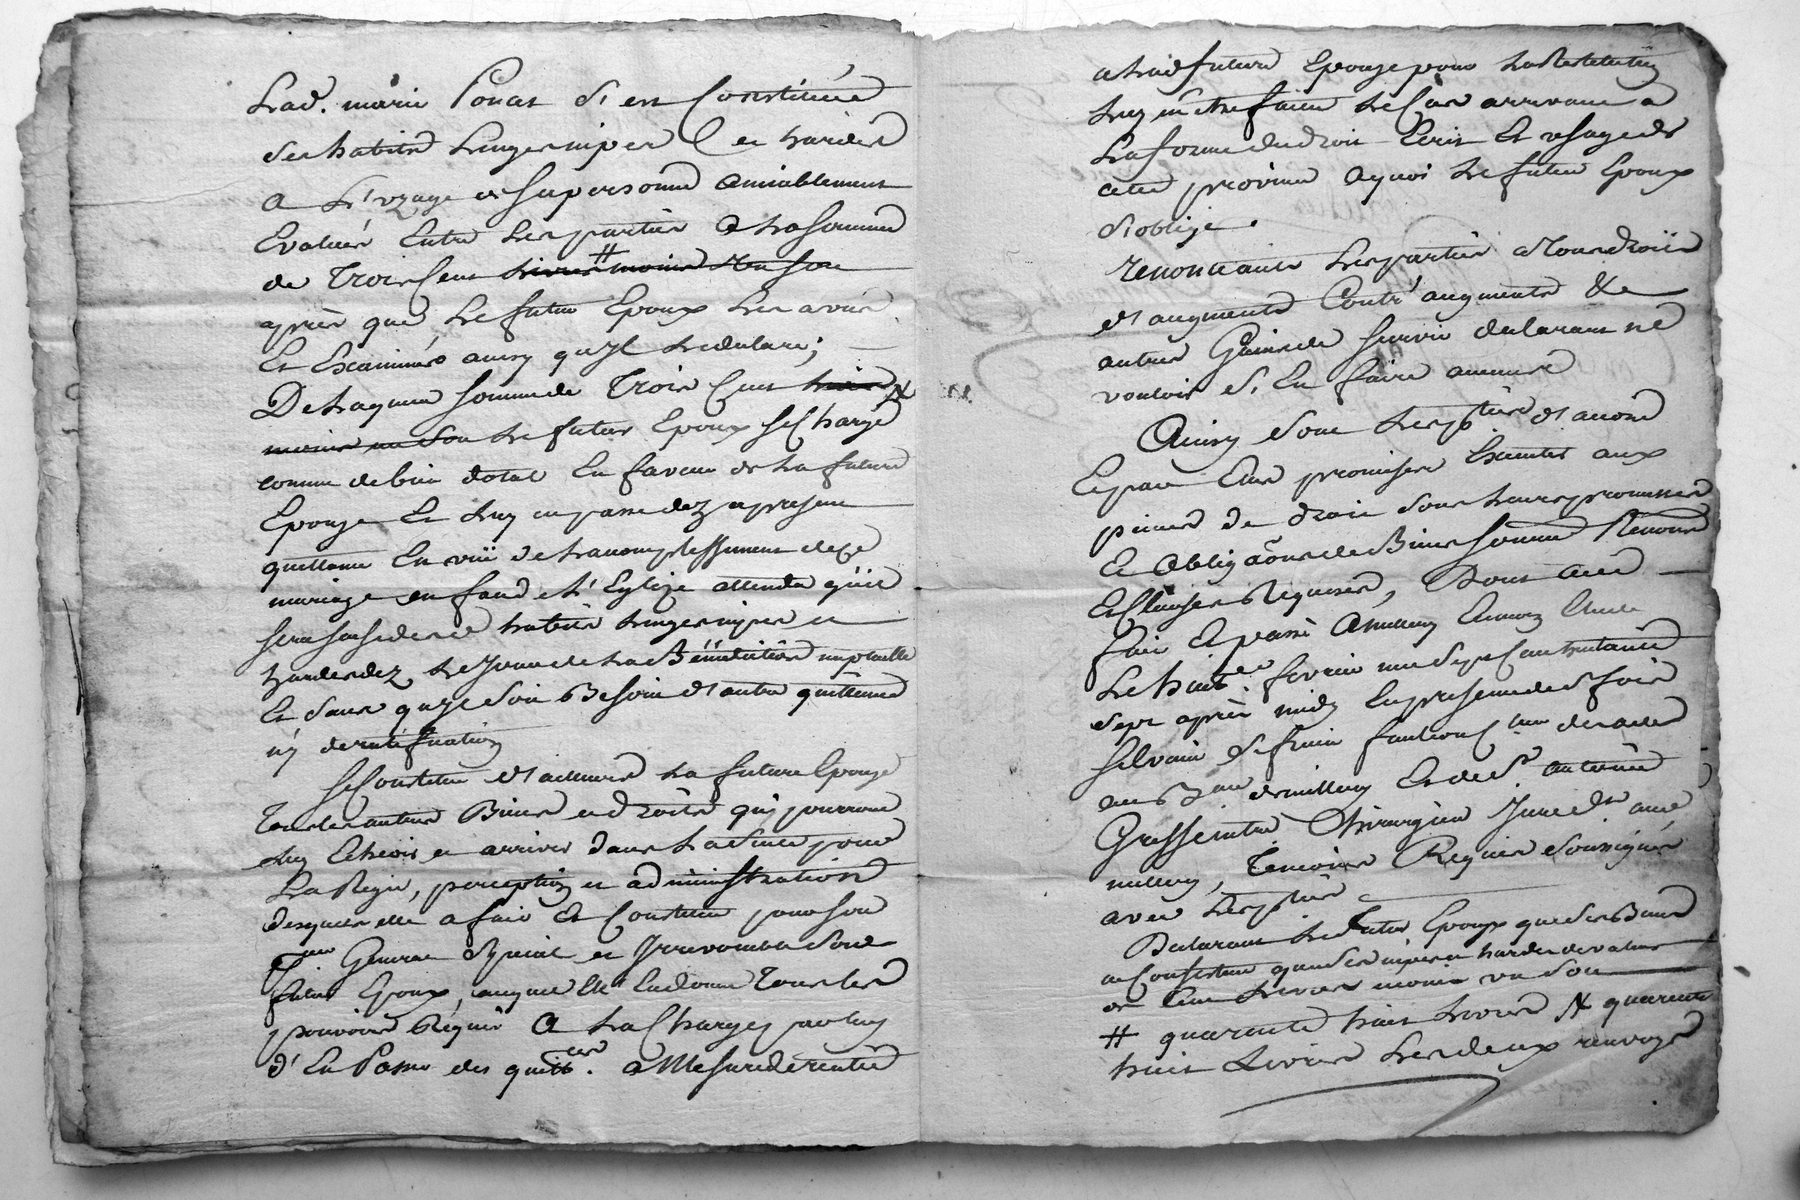 Lad. marie Ponat s'est Constituée
des habits Linges nipes et hardes
a L'uzage de sa personne amiablement
Evalués Entre Les parties a La somme
de trois Cent # livres moins un sou
après que Le futur Epoux Les a vües
Et Examinés ainsy qu'yl Le declare;
De Laquelle somme de trois Cent livres #
moins un sou Le futur Epoux se Charge
comme de bien dotal En faveur de La future
Epouze Et Luy en passe dez a present
quittance En vüe de L'accomplissement de ce
mariage en face de L'Eglize attendu qu'il
sera saisi desd. habits Linges nipes et
hardes dez Le Jour de La Bénédiction nuptialle
Et sans qu'yl soit Besoin d'autre quittance
ny de ratiffication
Se Constitue d'ailleurs La future Epouze
tous les autres Biens et droits qui pourront
Luy Echoir et arriver dans La suite pour
La Regie, perception et administration
desquels elle a fait Et Constitué pour son
Procur Général Spécial et Irrévocable led.
futur Epoux, auquel Elle En donne tous les
pouvoirs Réquis a La Charge par luy
d'En Passer des quitt.ces a Mesure de rentrée
a lad. future Epouze pour La Restitution
Luy en être faite Le Cas arrivant a
La forme du droit Ecrit Et usage de
cette province a quoi Le futur Epoux
s'oblige.
renonceants Les parties a tous droits
d'augments Contr'augments &e
autres Gains de survie declarant ne
vouloir s'En faire aucune
Ainsy Soue Les pties d'accord
Et par Elles promises Executer aux
peines de droit sous Leurs promesses
Et obligaõns de Biens soumõ Renonõ
Et Clauses Requises, Dont acte
fait Et passé a millery Etude
Le huit.e fevrier mil Sept Cent huitante
sept après midy En presence de Sr. fois
Silvain praticien des actes
au Bau de millery Et de Sr. antoine
Grassi maitre Chirurgien Juré dt. aud.
millery, temoins Requis Soussignés
avec Les pties
Declarant Le futur Epoux que ses Biens
ne Consistent qu'en ses nipes et hardes de valeur
de Cent Livres moins un Sou
# quarente huit Livres # quarente
huit Livres Les deux renvoys